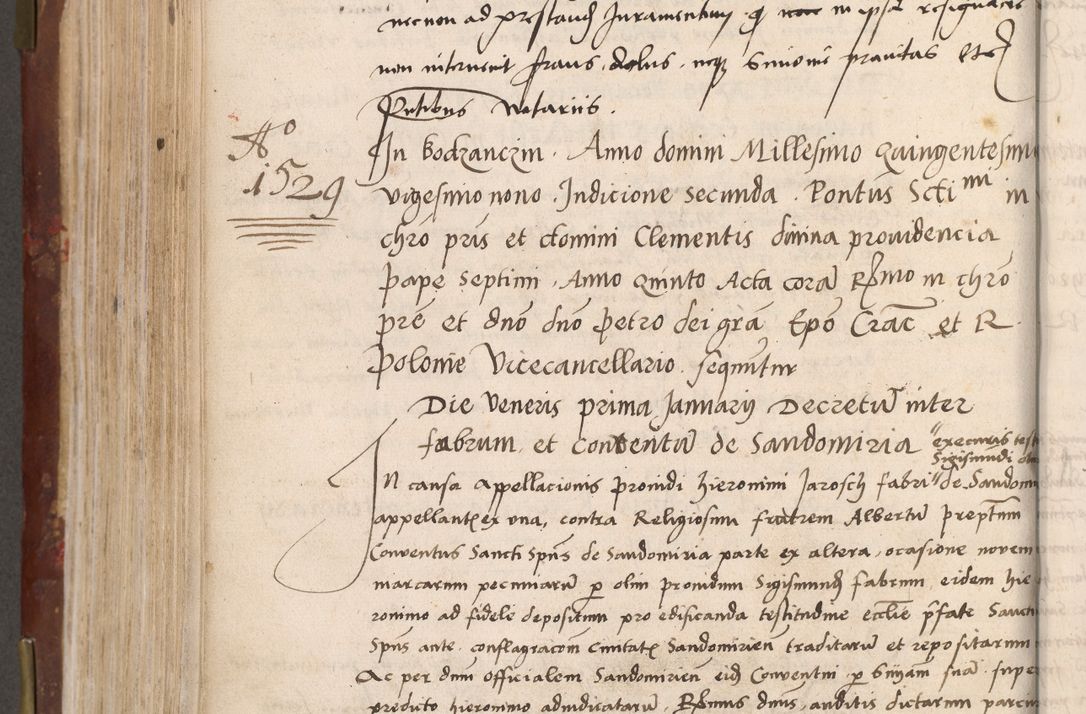 necnon ad prestand Juramentum q in ipsa resignacio
non intervenit fraus, dolus, neq Simonie pravitas etc
Putibus Notariis.
Aº 1529
In Bodzanczin. Anno domini Millesimo Quingentesimo
vigesimo nono. Indicione secunda. Pontus Sctimi in
chro pris et domini Clementis divina providencia
pape septimi. Anno Quinto Acta cora Rmo in chro
pre et dno dno Petro dei gra Epo Crac et R.
Polonie Vicecancellario. sequuntur
Die Veneris prima Januarij Decretu inter
fabrum et Conventu de Sandomiria
execuris test
Sigismundi
In causa appellacionis providi hieronimi Jarosch fabri de Sandom
appellantex ex una, contra Religiosum fratrem Albertu preptum
Conventus Sancti Spus de Sandomiria parte ex altera, ocasione novem
marcarum pecuniaru p olim providum Sigismund fabrum eidem hie
ronimo ad fidele depositum pro edificanda testitudine ecclie pfate Sancti
Spus ante conflagracom Civitatx Sandomirien traditaru et repositarum
Ac per dnm officialem Sandomirien eid Conventui p sniam sua super
predicto hieronimo adiudicataru, Rmus dnus, auditis dictarum parcium